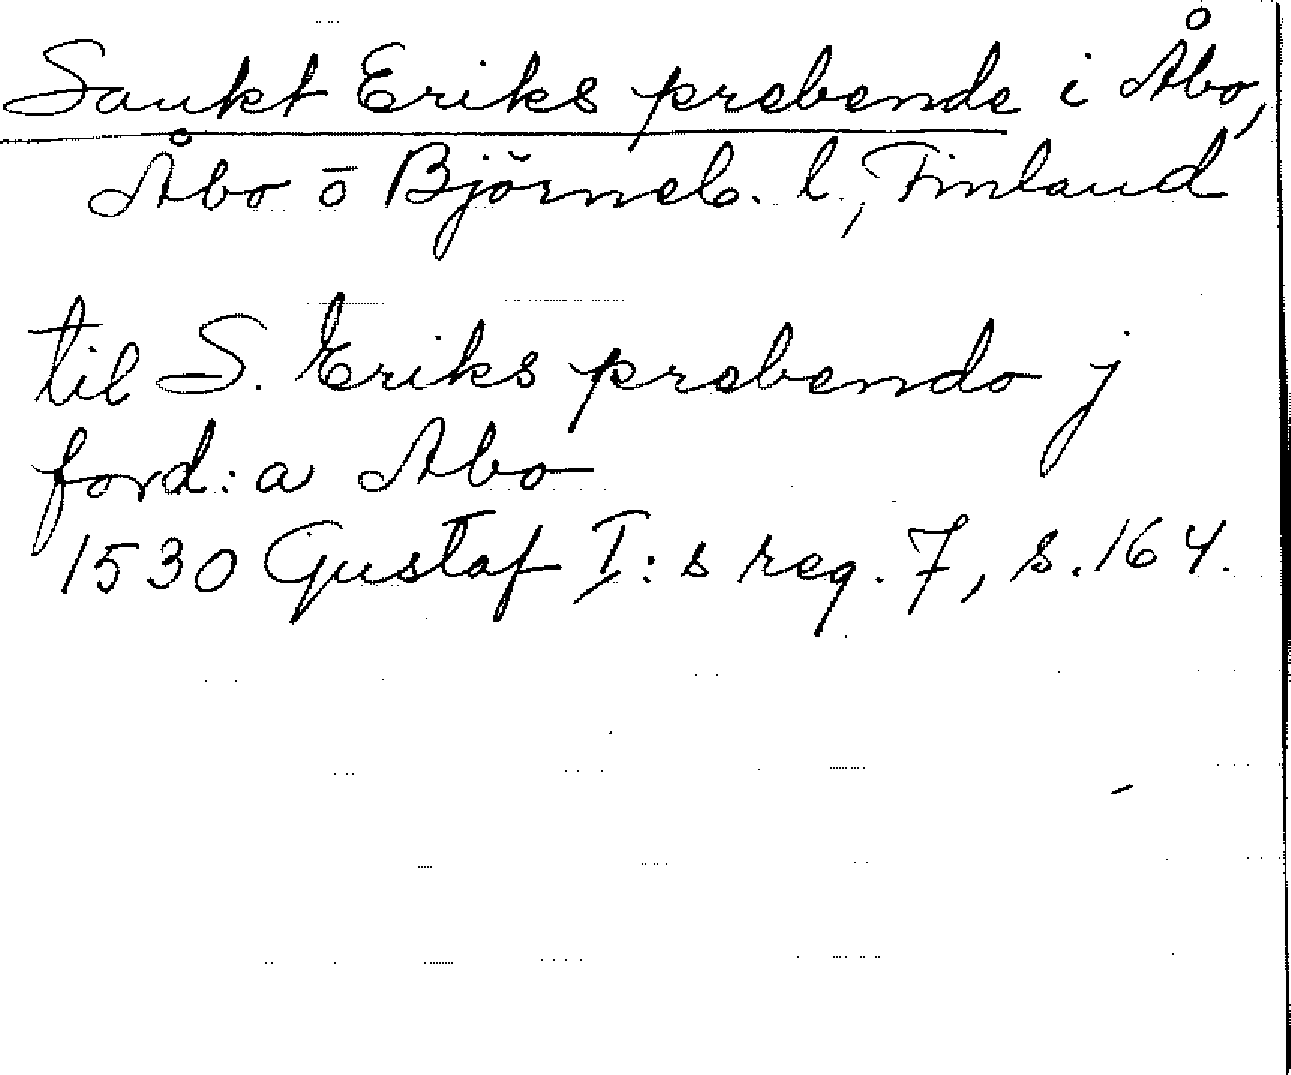 Sankt Eriks prebende i Åbo,
Åbo ō Björneb. l., Finland
til S. Eriks prebendo j
ford: a Abo
1530 Gustaf I:s reg. 7, s. 164.